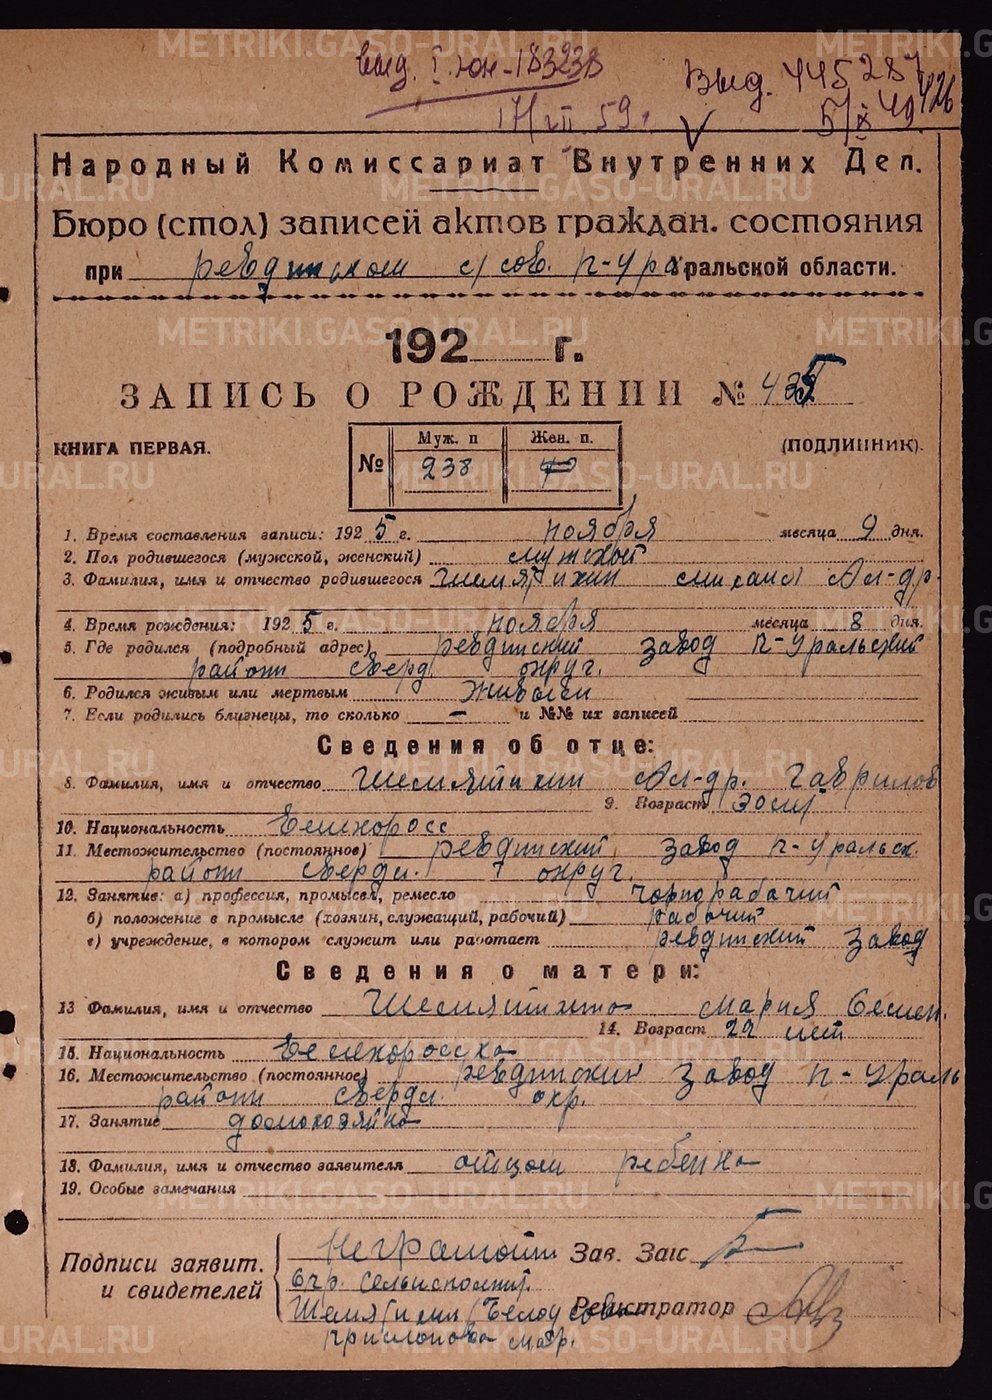 выд. I юн-183238
Выд. 445287
426
17/VII 59 г.
5/X 49
Народный Комиссариат Внутренних Дел.
Бюро (стол) записей актов граждан. состояния
при Ревдинском с/сов. П-Ура Уральской области.
192 г.
ЗАПИСЬ О РОЖДЕНИИ №
КНИГА ПЕРВАЯ.
(ПОДЛИННИК).
№ Муж. п Жен. п.
238
1. Время составления записи: 1925 г. ноября месяца 9 дня.
2. Пол родившегося (мужской, женский) мужской
3. Фамилия, имя и отчество родившегося Шемятихин Михаил Ал-др.
4. Время рождения: 1925 г. ноября месяца 8 дня.
5. Где родился (подробный адрес) Ревдинский завод П-Уральский
район Сверд. округ.
6. Родился живым или мертвым живым
7. Если родились близнецы, то сколько — и №№ их записей
Сведения об отце:
8. Фамилия, имя и отчество Шемятихин Ал-др. Гаврилов
9. Возраст 30 лет
10. Национальность Великоросс
11. Местожительство (постоянное) Ревдинский завод П-Уральск.
район Свердл. округ.
12. Занятие: а) профессия, промысел, ремесло чорнорабочий
б) положение в промысле (хозяин, служащий, рабочий) рабочий
в) учреждение, в котором служит или работает Ревдинский завод
Сведения о матери:
13 Фамилия, имя и отчество Шемятихина Мария Семен.
14. Возраст 22 лет
15. Национальность Великоросска
16. Местожительство (постоянное) Ревдинский завод П-Ураль
район Свердл. окр.
17. Занятие домохозяйка
18. Фамилия, имя и отчество заявителя отцом ребенка
19. Особые замечания
Подписи заявит. и свидетелей
Неграмотн Зав. Загс
сельисполнит.
Шемятихин Регистратор
METRIKI.GASO-URAL.RU